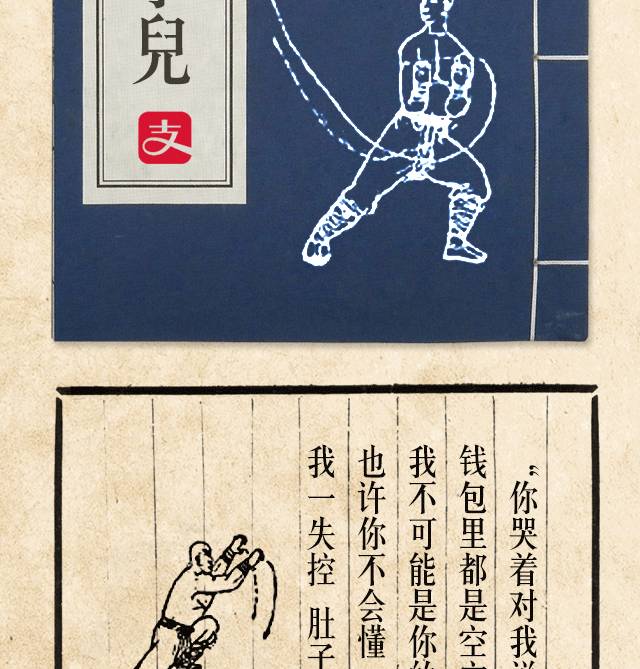 兒
支
”你哭着对我
钱包里都是空
我不可能是你
也许你不会懂
我一失控 肚子